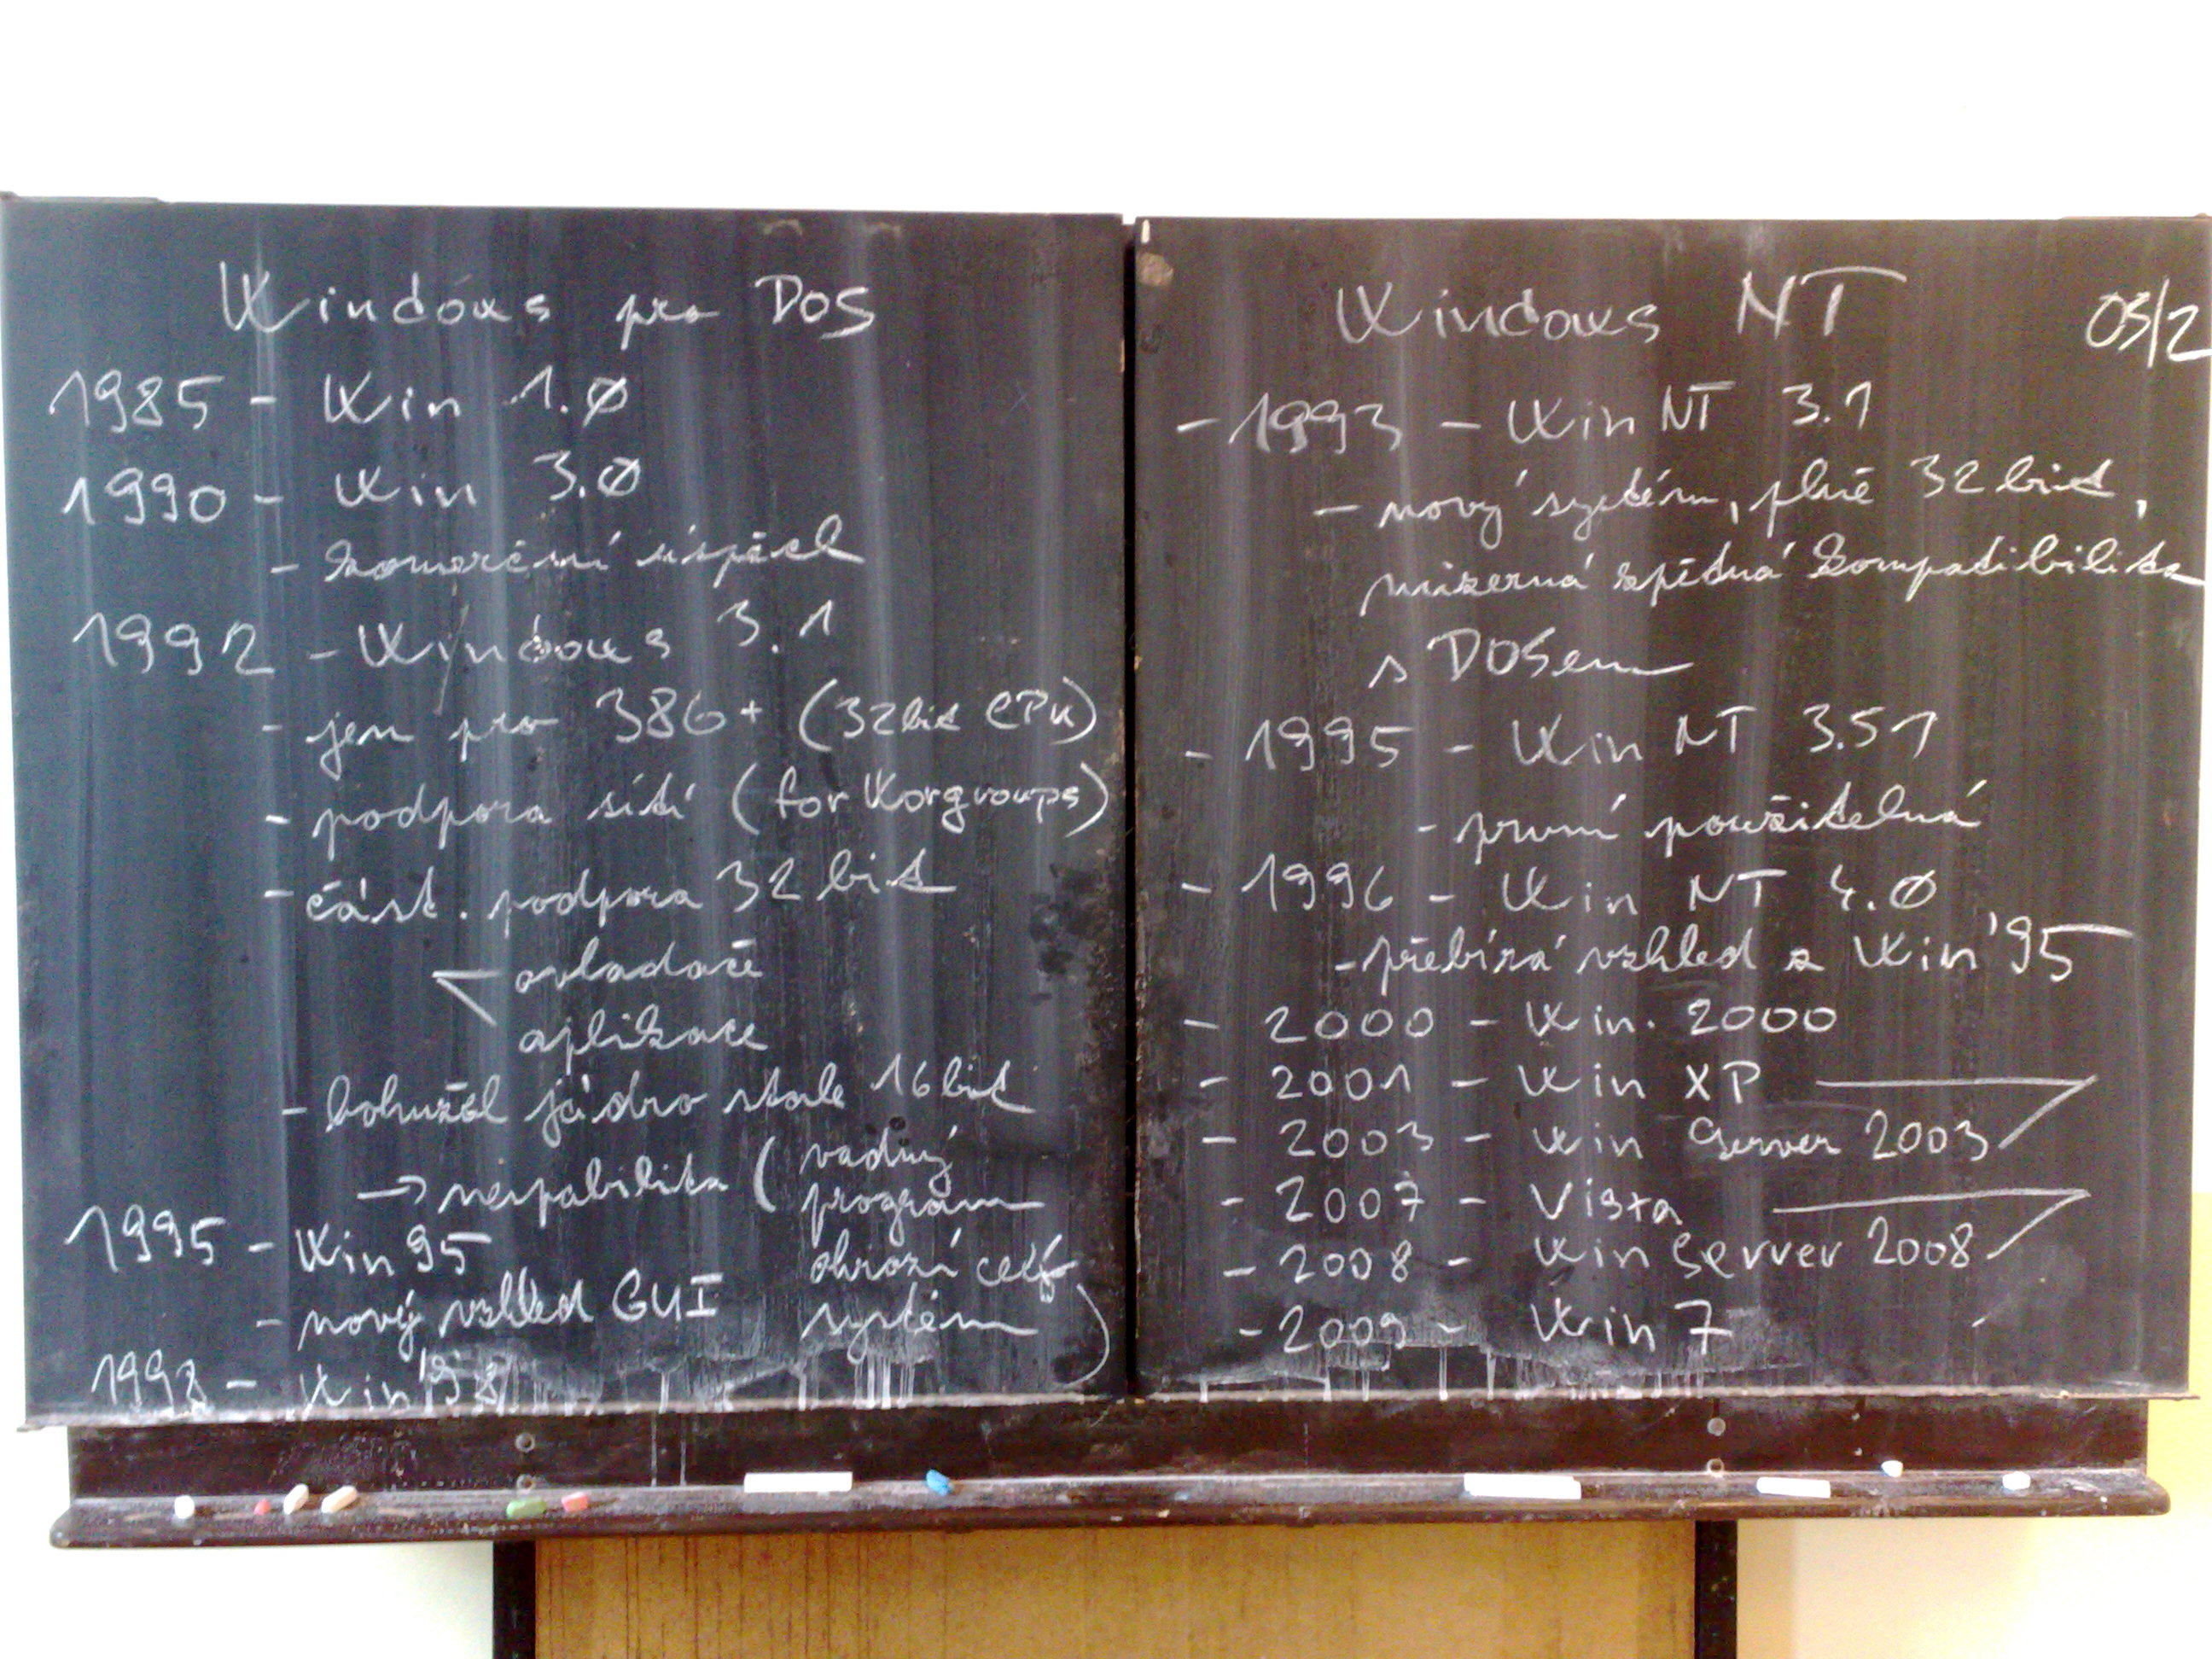 Windows pro DOS
1985 - Win 1.0
1990 - Win 3.0
- komerční úspěch
1992 - Windows 3.1
- jen pro 386+ (32bit CPU)
- podpora sítí (for Worgroups)
- část. podpora 32 bit
ovladače
aplikace
- bohužel jádro stale 16 bit
→ nespabilita (vadný
program
ohrozí celý
systém)
1995 - Win 95
- nový vzhled GUI
1998 - Win '98
Windows NT
OS/2
- 1993 - Win NT 3.1
- nový systém, plně 32 bit,
mizerná zpětná kompatibilita
s DOSem
- 1995 - Win NT 3.51
- první použitelná
- 1996 - Win NT 4.0
- přebírá vzhled z Win '95
- 2000 - Win. 2000
- 2001 - Win XP
- 2003 - Win Server 2003
- 2007 - Vista
- 2008 - Win Server 2008
- 2009 - Win 7